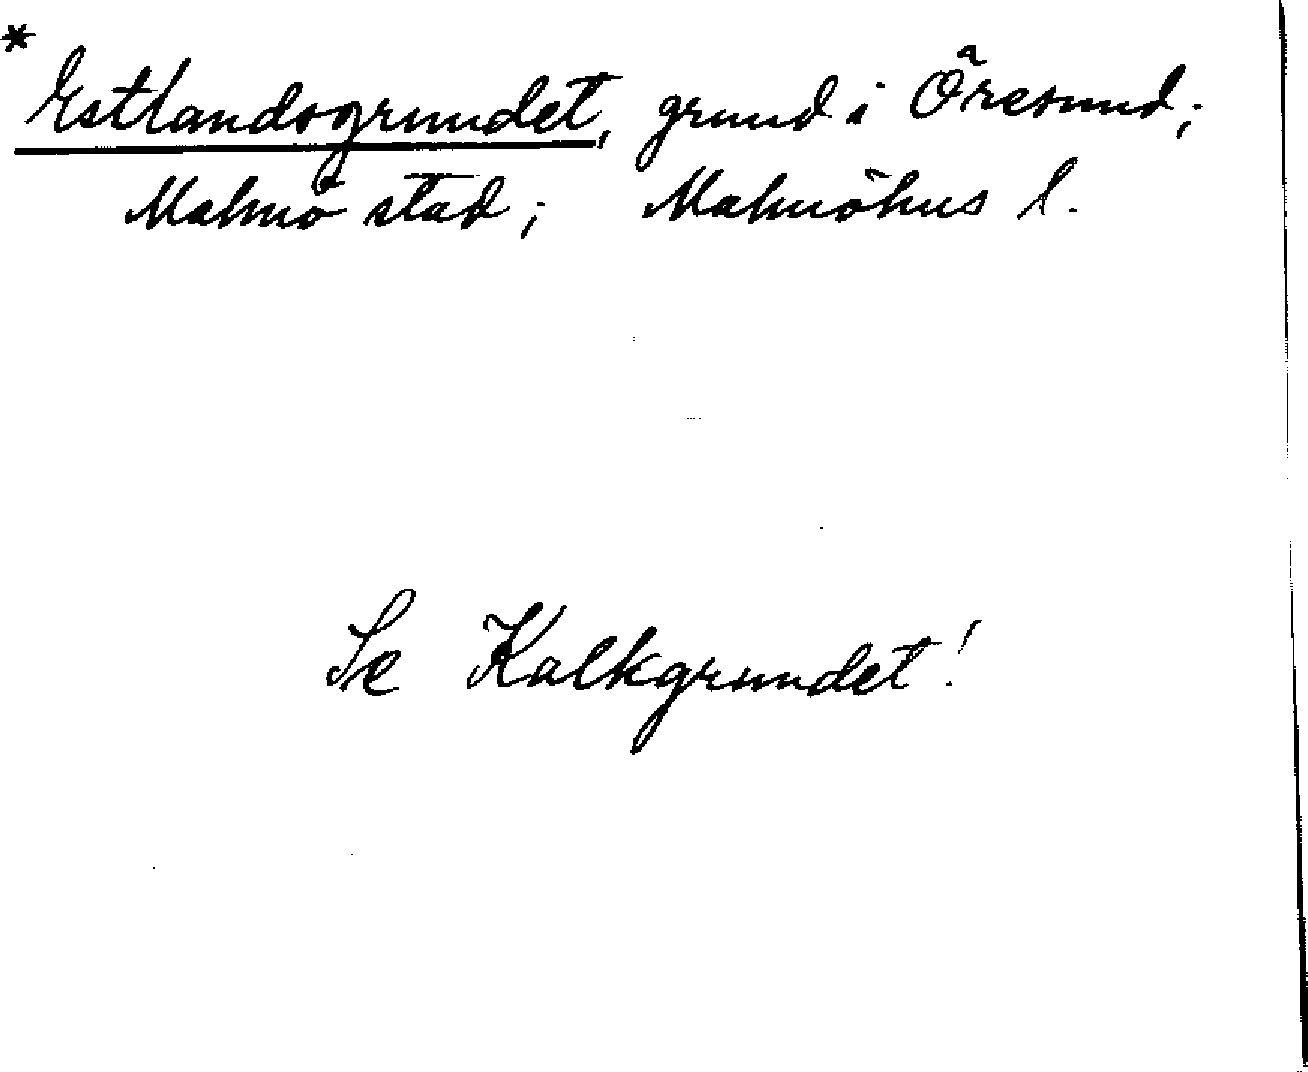 * Estlandsgrundet, grund i Öresund;
Malmö stad; Malmöhus l.
Se Kalkgrundet!